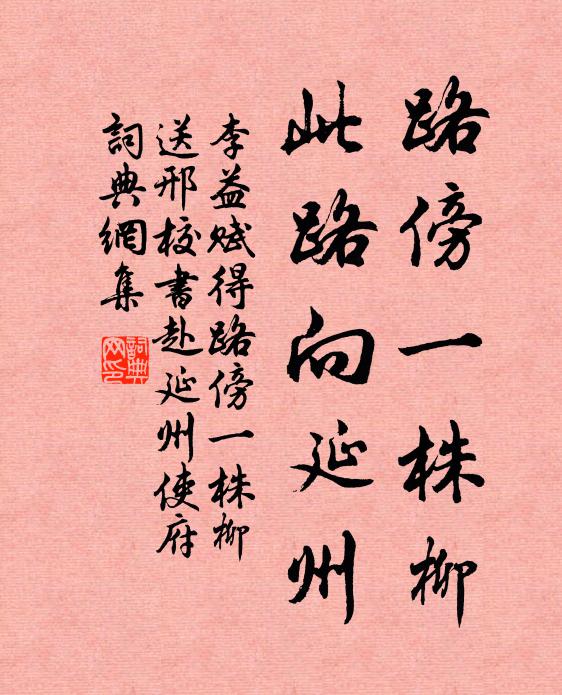 路傍一株柳
此路向延州
李益赋得路傍一株柳
送邢校書赴延州使府
詞典網集
詞典网印